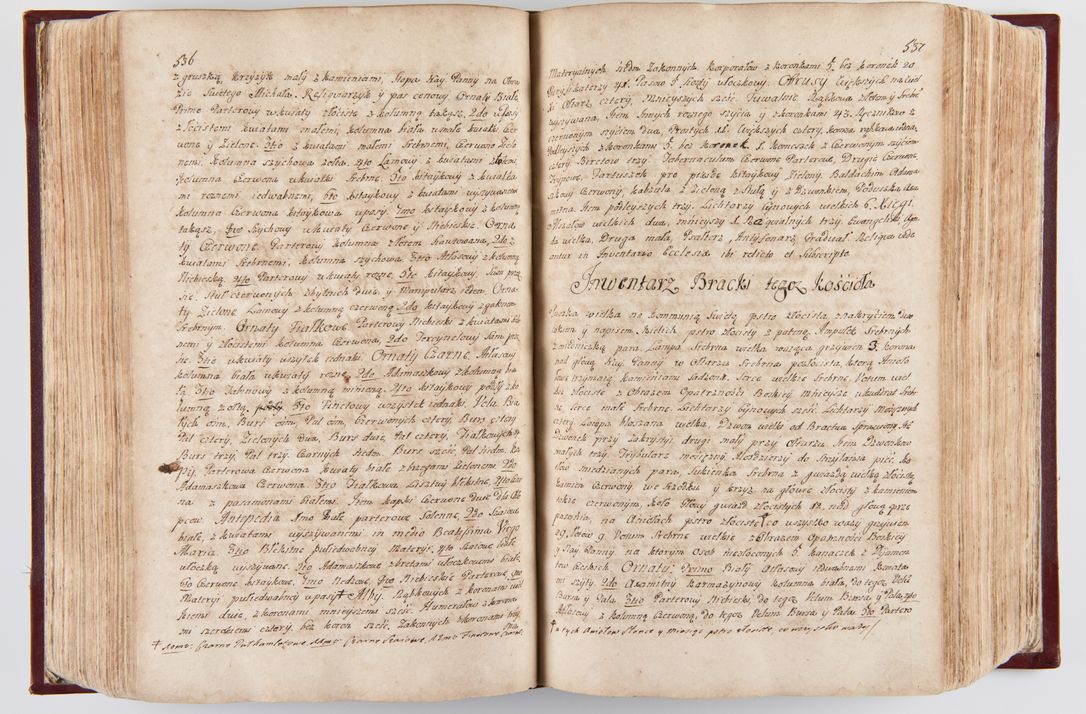 536
z gruszką, krzyżyk mały z kamieniami, Kopa Nay: Panny na Obra
zie Swiętego Michała. Religwiarzyk y pas cenowy. Ornaty Białe
Primo Parterowy w kwiaty złociste z kolumną takąsz, 2do
złocistemi kwiatami małemi, kolumna biała w małe kwiatki Czer
wone y Zielone. 3tio z kwiatami małemi Srebrnemi, Czerwone Zielo
nemi, kolumna szychowa zołta. 4to Lamowy z kwiatami złotemi,
kolumna Czerwona w kwiatki Srebrne. 5to kitaykowy z kwiatka
mi roznemi iedwabnemi, 6to kitaykowy z kwiatami wyszywanemi
kolumna Czerwona kitaykowa w pasy. 7mo kitaykowy z kolumną
takąsz, 8vo Szychowy w kwiaty Czerwone y Niebieskie. Orna
ty Czerwone Parterowy kolumna złotem haftowana, 2do z
kwiatami Srebrnemi, kolumna szychowa. 3tio Atłasowy z kolumną
Niebieską. 4to Parterowy w kwiaty rozne. 5to kitaykowy
Stuł czerwonych zbytnich dwie, y Manipularz ieden. Orna
ty Zielone Lamowy z kolumną czerwoną. 2do kitaykowy z galonem
Srebrnym. Ornaty Fiałkowe. Parterowy Niebieski z kwiatami Sre
nemi y złocistemi kolumna Czerwona, 2do Tercynelowy
3tio w kwiaty wszytek iednaki. Ornaty Czarne, Atłasowy
kolumna biała w kwiaty rozne. 2do Adamaszkowy z kolumną bia
łą 3tio Zabinowy z kolumną mienioną. 4to kitaykowy
lumną zołtą, 5to Tinetowy wszystek iednaki. Vela Bia
łych osm, Burs osm, Pal osm, Czerwonych cztery, Burs cztery
Pal cztery, Zielonych dwa, Burs dwie, Pal cztery, Fiałkowych
Burs trzy, Pal trzy, Czarnych siedm, Burs sześć, Pal siedm. Ka
py, Parterowa Czerwona kwiaty białe z brzegami Zielonemi 2do
Adamaszkowa Czerwona 3tio Fiałkowa
na z pasamonami białemi. Item kapki Czerwone dwie dla Chło
pcow. Antepedia 1mo Białe parterowe Solenne, 2do
białe, z kwiatami wyszywanemi in medio Beatissima Virgo
Maria. 3tio Błękitne pułiedwabney Materyi. 4to
włoczką wyszywane. 5to Adamaszkowe z bretami włoczkowemi białe,
6to Czerwone kitaykowe, 7mo 8vo Niebieskie Parterowe,
Materyi pułiedwabney w pasy † Alby, Rąbkowych z koronami wiel
kiemi dwie, z koronami mnieyszemi sześć. Humerałow z korona
mi szerokiemi cztery, bez koron sześć. Zakonnych z koronami trzy,
† Czarne Czarne

537
Materyalnych siedm. Zakonnych korporałow z koronkami 5. bez koronek 20
Puryfikaterzy 41. Pasow 5 włoczkowy. Obrusy większych na wiel
ki Ołtarz cztery, Mnieyszych sześć. Tuwalnie, Rąbkowa złotem y Srebr
wyszywana, Item Innych roznego szycia y z koronkami 43. Ręcznikow z
czerwonym szyciem dwa, Prostych 11. Większych cztery,
Podleyszych z koronkami 5. bez koronek 1. komeszek z Czerwonym szyciem
cztery. Biretow trzy. Tabernaculum Czerwone Parterowe, Drugie Czerwone
Trypowe, Fartuszek pro pixide kitaykowy Zielony. Baldachim Adama
szkowy Czerwony, kapiola z Zieloną z y z Dzwonkiem, Poduszka
mitna. Item podleyszych trzy. Lichtarzy Cynowych wielkich 6. Xięgi.
Mszałow wielkich dwa, mnieyszy 1. Requialnych trzy, Ewangeliczki
da wielka, Druga mała, Psałterz, Antyfonarz, Graduał. Reliqua
antur in Inventario Ecclesia ibi relicto et Subscripto.

Inwentarz Bracki tegoż kościoła

Puszka wielka na kommunią Swiętą pstro złocista, z nakryciem
y napisem. kielich pstro złocisty z pateną. Ampułek Srebrnych
z miedniczką para. Lampa Srebrna wielka waząca grzywien 3. Korona
nad głową Nay: Panny w Ołtarzu Srebrna pozłocista, ktorą Anioło
wie trzymaią kamieniami sadzona. Serce wielkie Srebrne. Votum wiel
kie złociste z Obrazem Opatrzności Boskiey, mnieysze w kwadrat Srebr
ne, Serce małe Srebrne. Lichtarzy Cynowych sześć. Lichtarzy Mosiężnych
cztery. Lampa blaszana wielka, Dzwon wielki od Bractwa sprawiony.
Dzwonek przy Zakrystyi, drugi mały przy Ołtarzu. Item Dzwonkow
małych trzy, Trybularz mosiężny. Mozdzierzy do strzylania pięć.
łow miedzianych para, Sukienka Srebrna z gwiazdą wielką złocistą,
kamień Czerwony we środku y krzyż na głowie złocisty z kamieniem
takze czerwonym, koło Głowy gwiazd złocistych 12. nad głową
pasania, na Aniołach pstro złociste † co wszystko wazy grzywien
29. łotow 9. Votum Srebrne wielkie z Obrazem Opatrzności Boskiey
y Nay: Panny na ktorym Osob niezłoconych 5. kanaczek z Dyamen
tow Czeskich. Ornaty. Primo Biały Atłasowy iedwabnemi kwiata
mi szyty. 2do Axamitny karmazynowy kolumna biała, do tego Vela
Bursa y Pala. 3tio Parterowy Niebieski, do tego Velum Bursa y Pala, 4to
Atłasowy z kolumną Czerwoną, do tego Velum Bursa y Pala. 5to Partero
† a tych Aniołow Słońce y Miesiąc pstro złociste, co wszystko wazy //